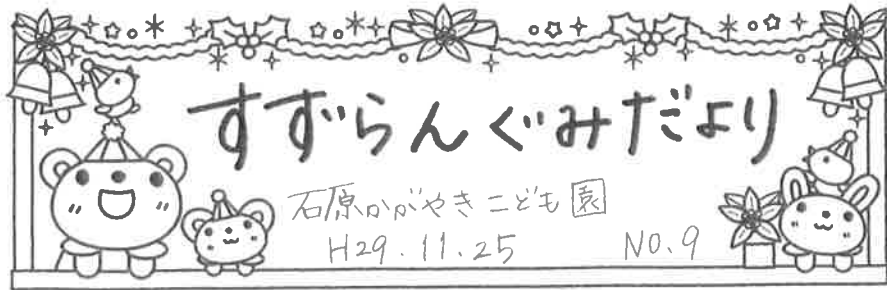 すずらんぐみだより
石原かがやきこども園
H29.11.25 NO.9